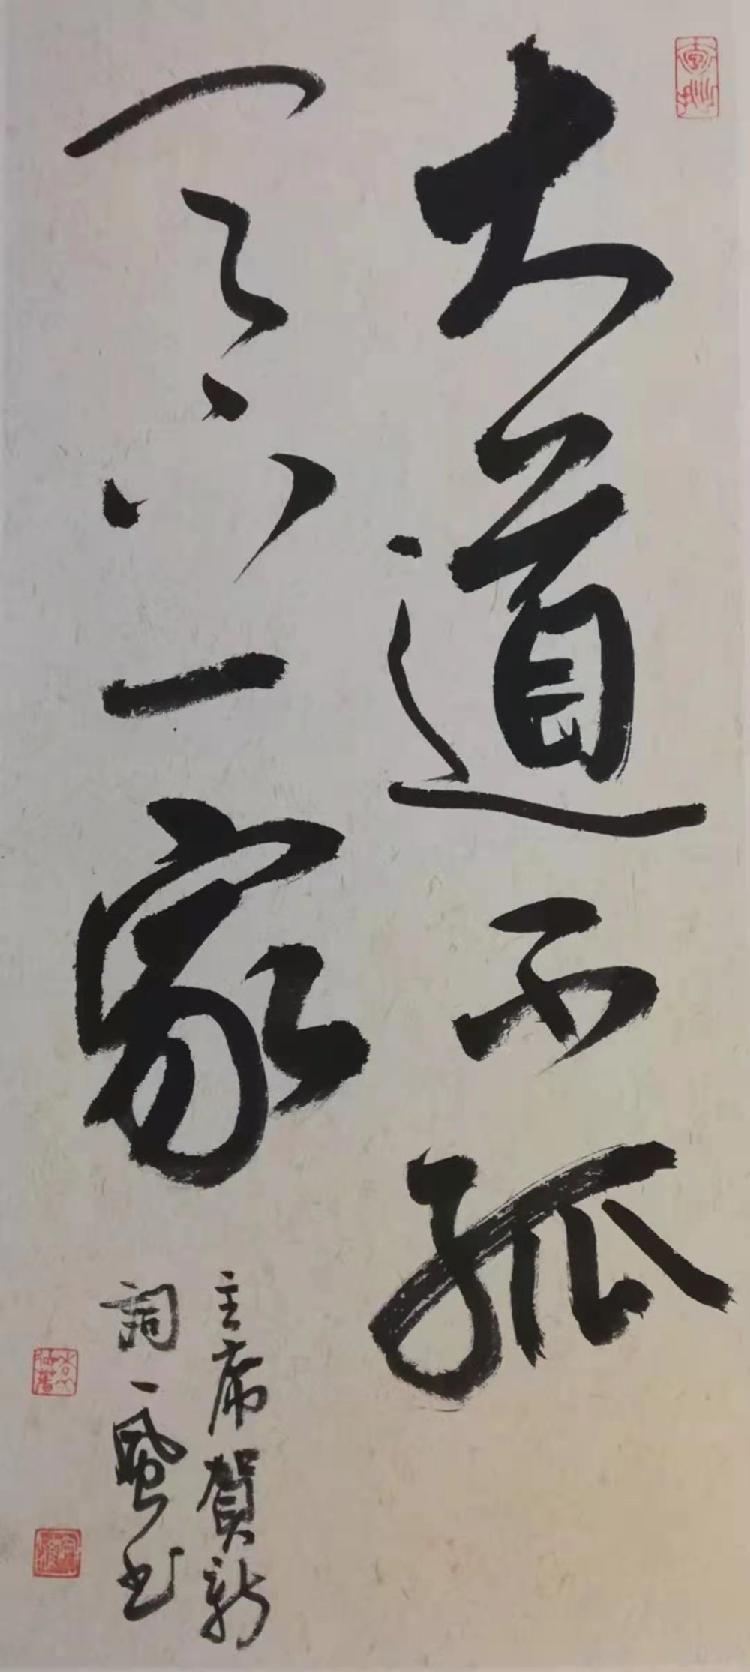 大道不孤
天下一家
主席賀新
詞一風书